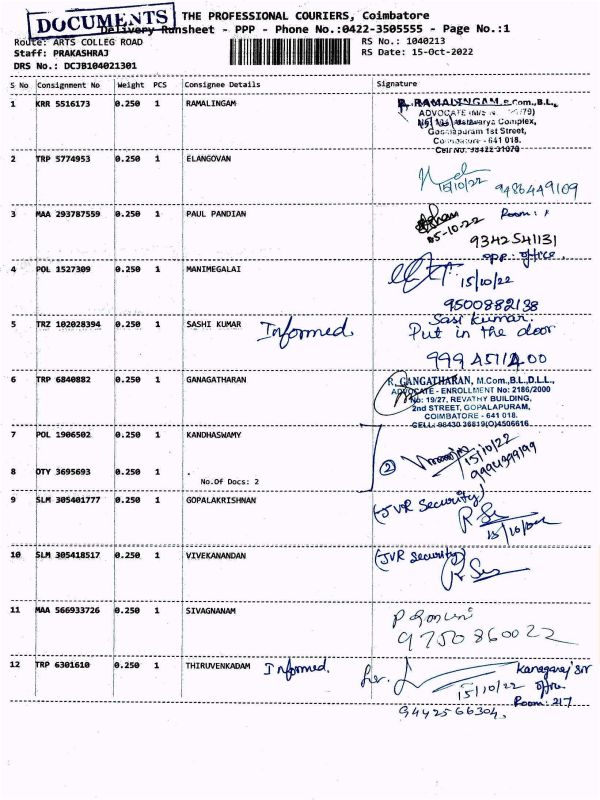 DOCUMENTS
THE PROFESSIONAL COURIERS, Coimbatore
Delivery Runsheet - PPP - Phone No.:0422-3505555 - Page No.:1
Route: ARTS COLLEG ROAD RS No.: 1040213
Staff: PRAKASHRAJ RS Date: 15-Oct-2022
DRS No.: DCJB104021301
S No Consignment No Weight PCS Consignee Details Signature
1 KRR 5516173 0.250 1 RAMALINGAM
R. RAMALINGAM, B.Com.,B.L.,
ADVOCATE
Complex,
Gopalapuram 1st Street,
Coimbatore - 641 018.
Cell No: 98422 31070
2 TRP 5774953 0.250 1 ELANGOVAN
15/10/22 9486449109
3 MAA 293787559 0.250 1 PAUL PANDIAN
Room: 1
15-10-22
9342541131
opp: office.
4 POL 1527309 0.250 1 MANIMEGALAI
15/10/22
9500882138
5 TRZ 102028394 0.250 1 SASHI KUMAR Informed
Sasi Kumar.
Put in the door
6 TRP 6840882 0.250 1 GANAGATHARAN
R. GANGATHARAN, M.Com.,B.L.,D.L.L.,
ADVOCATE - ENROLLMENT No: 2186/2000
No: 19/27, REVATHY BUILDING,
2nd STREET, GOPALAPURAM,
COIMBATORE - 641 018.
CELL: 98430 36819(O)4506616
7 POL 1906502 0.250 1 KANDHASWAMY
2
15/10/22
8 OTY 3695693 0.250 1
No.Of Docs: 2
9 SLM 305401777 0.250 1 GOPALAKRISHNAN
(JVR Security)
10 SLM 305418517 0.250 1 VIVEKANANDAN
(JVR Security)
11 MAA 566933726 0.250 1 SIVAGNANAM
9750860022
12 TRP 6301610 0.250 1 THIRUVENKADAM Informed.
Kanagaraj Sir
15/10/22 office
Room: 217
9442566304,